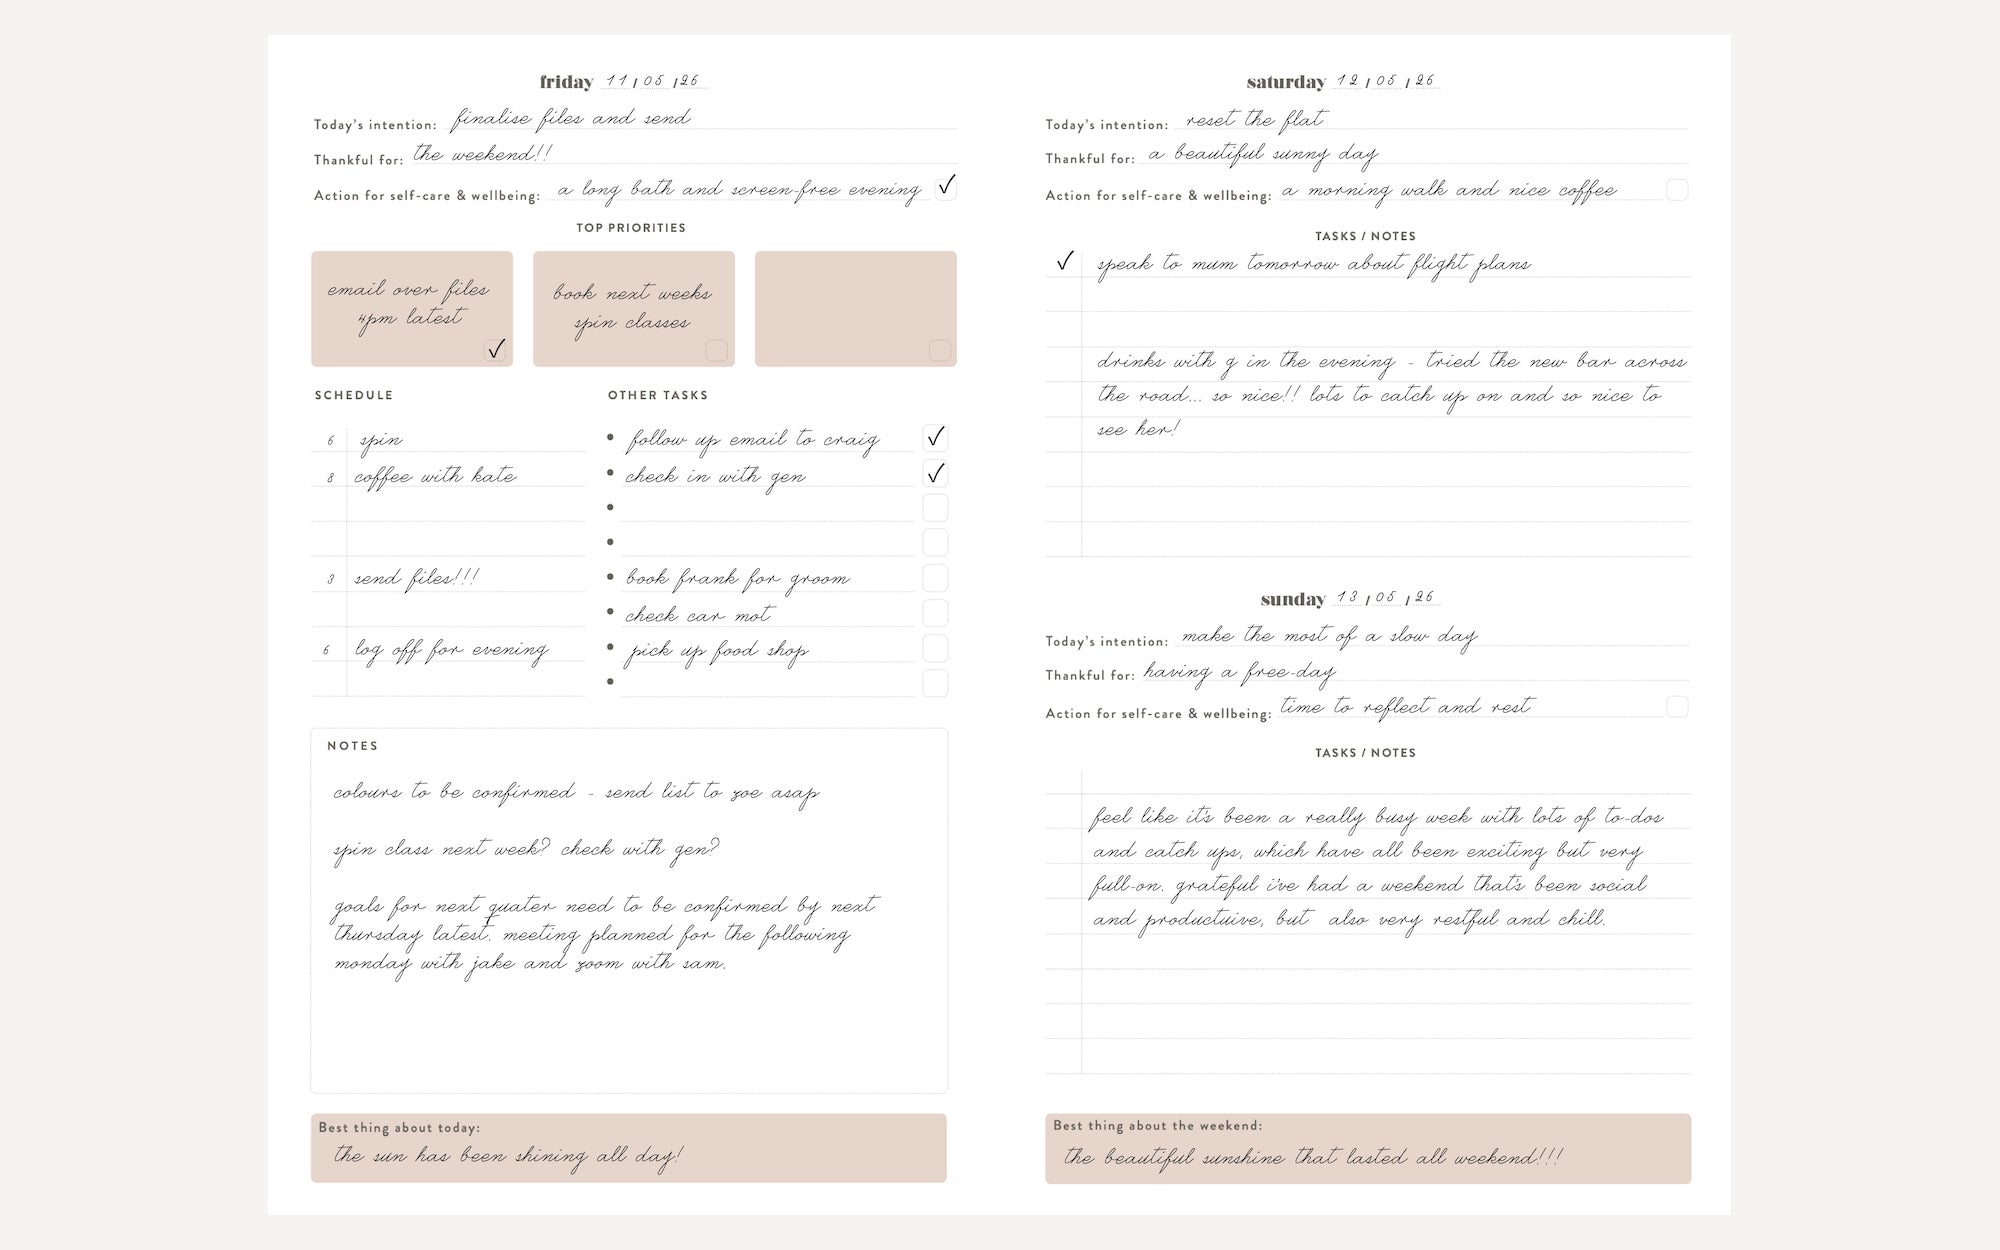 friday 11/05/26
Today's intention: finalise files and send
Thankful for: the weekend!!
Action for self-care & wellbeing: a long bath and screen-free evening ✓
TOP PRIORITIES
email over files
4pm latest
✓
book next weeks
spin classes
SCHEDULE
6 spin
8 coffee with kate
3 send files!!!
6 log off for evening
OTHER TASKS
• follow up email to craig ✓
• check in with gen ✓
•
•
• book frank for groom
• check car mot
• pick up food shop
•
NOTES
colours to be confirmed - send list to zoe asap
spin class next week? check with gen?
goals for next quater need to be confirmed by next
r
thursday latest. meeting planned for the following
monday with jake and zoom with sam.
Best thing about today:
the sun has been shining all day!
saturday 12/05/26
Today's intention: reset the flat
Thankful for: a beautiful sunny day
Action for self-care & wellbeing: a morning walk and nice coffee
TASKS / NOTES
✓ speak to mum tomorrow about flight plans
drinks with g in the evening - tried the new bar across
the road... so nice!! lots to catch up on and so nice to
see her!
sunday 13/05/26
Today's intention: make the most of a slow day
Thankful for: having a free-day
Action for self-care & wellbeing: time to reflect and rest
TASKS / NOTES
feel like it's been a really busy week with lots of to-dos
and catch ups, which have all been exciting but very
full-on. grateful i've had a weekend that's been social
and productuive, but also very restful and chill.
Best thing about the weekend:
the beautiful sunshine that lasted all weekend!!!